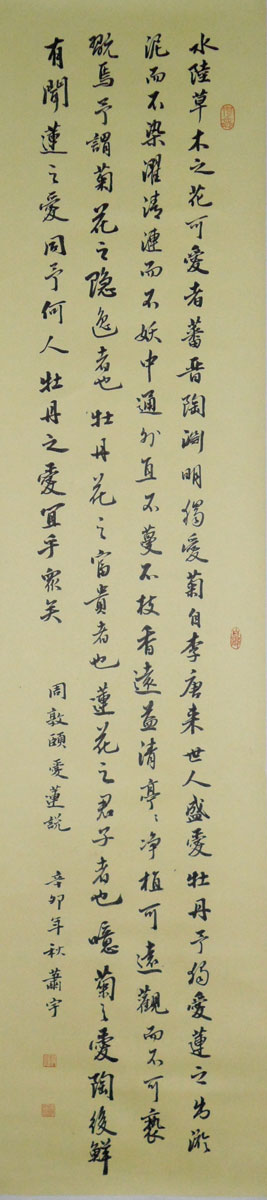 水陸草木之花可愛者蕃晋陶渕明獨愛菊自李唐来世人盛愛牡丹予獨愛蓮之出淤
泥而不染濯清漣而不妖中通外直不蔓不枝香遠益清亭〻净植可遠觀而不可褻
翫焉予謂菊花之隐逸者也牡丹花之富貴者也蓮花之君子者也噫菊之愛陶後鮮
有聞蓮之愛同予何人牡丹之愛宜乎衆矣
周敦頤愛蓮説 辛卯年秋蕭宇